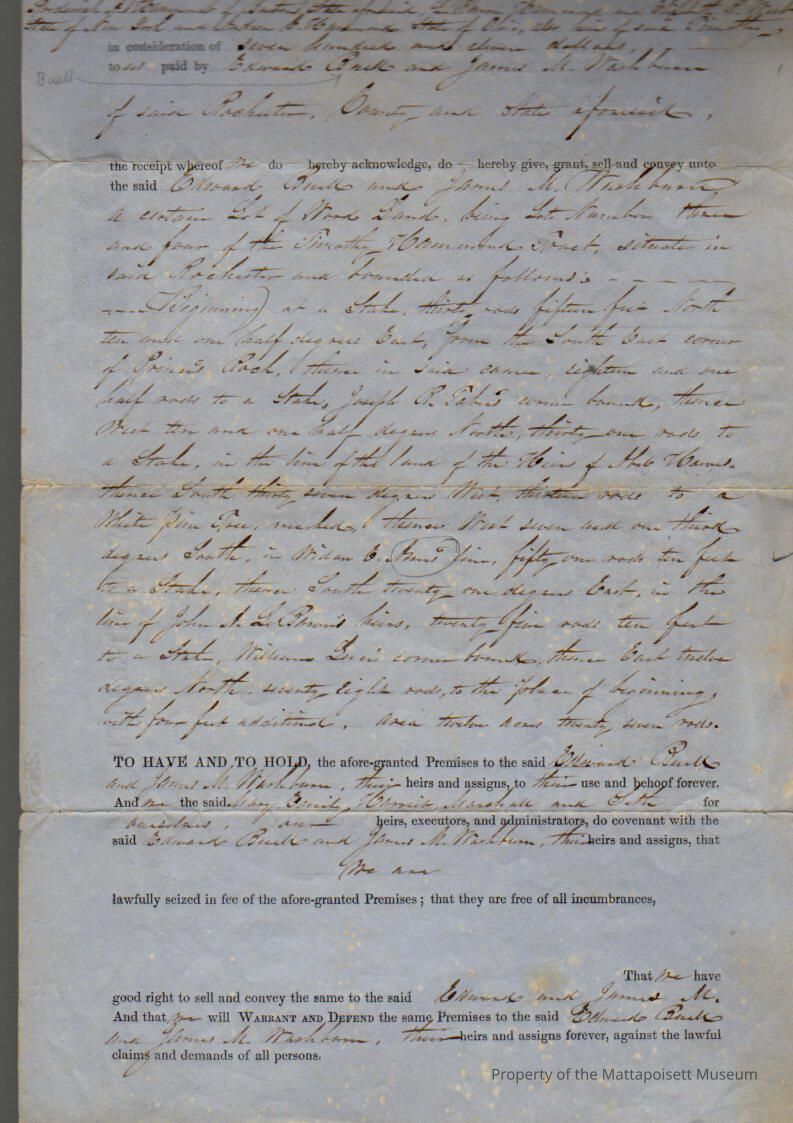 State of New York and Andrew C. Hammond State of Ohio, also heirs of said Timothy
in consideration of seven hundred and eleven dollars,
to us paid by Edward Buell and James M. Washburn
Buell
of said Rochester, County and State aforesaid,
the receipt whereof we do hereby acknowledge, do hereby give, grant, sell and convey unto
the said Edward Buell and James M. Washburn,
a certain Lot of Wood Land, being Lot Number three
and four of the Timothy Hammond Tract, situate in
said Rochester and bounded as follows:
(Beginning) at a Stake, thirty rods fifteen feet North
ten and one half degrees East, from the South East corner
of Prince's Rock, thence in said course, eighteen and one
half rods to a Stake, Joseph R. Taber's corner bound, thence
West ten and one half degrees North, thirty one rods to
a Stake, in the line of the land of the Heirs of
thence South thirty seven degrees West, thirteen rods to a
White Pine Tree, marked, thence West seven and one third
degrees South, in Widow C. line, fifty one rods ten feet
to a Stake, thence South twenty one degrees East, in the
line of John A. LeBaron's heirs, twenty five rods ten feet
to a Stake, William corner bound, thence East twelve
degrees North, seventy Eight rods, to the place of beginning,
with four feet additional. area twelve acres twenty seven rods.
TO HAVE AND TO HOLD, the afore-granted Premises to the said Edward Buell
and James M. Washburn, their heirs and assigns, to their use and behoof forever.
And we the said Mary Emily, Harriet, Marshall and Seth for
ourselves, our heirs, executors, and administrators, do covenant with the
said Edward Buell and James M. Washburn, their heirs and assigns, that
We are
lawfully seized in fee of the afore-granted Premises; that they are free of all incumbrances,
That we have
good right to sell and convey the same to the said Edward and James M.
And that we will WARRANT AND DEFEND the same Premises to the said Edward Buell
and James M. Washburn, their heirs and assigns forever, against the lawful
claims and demands of all persons.
Property of the Mattapoisett Museum